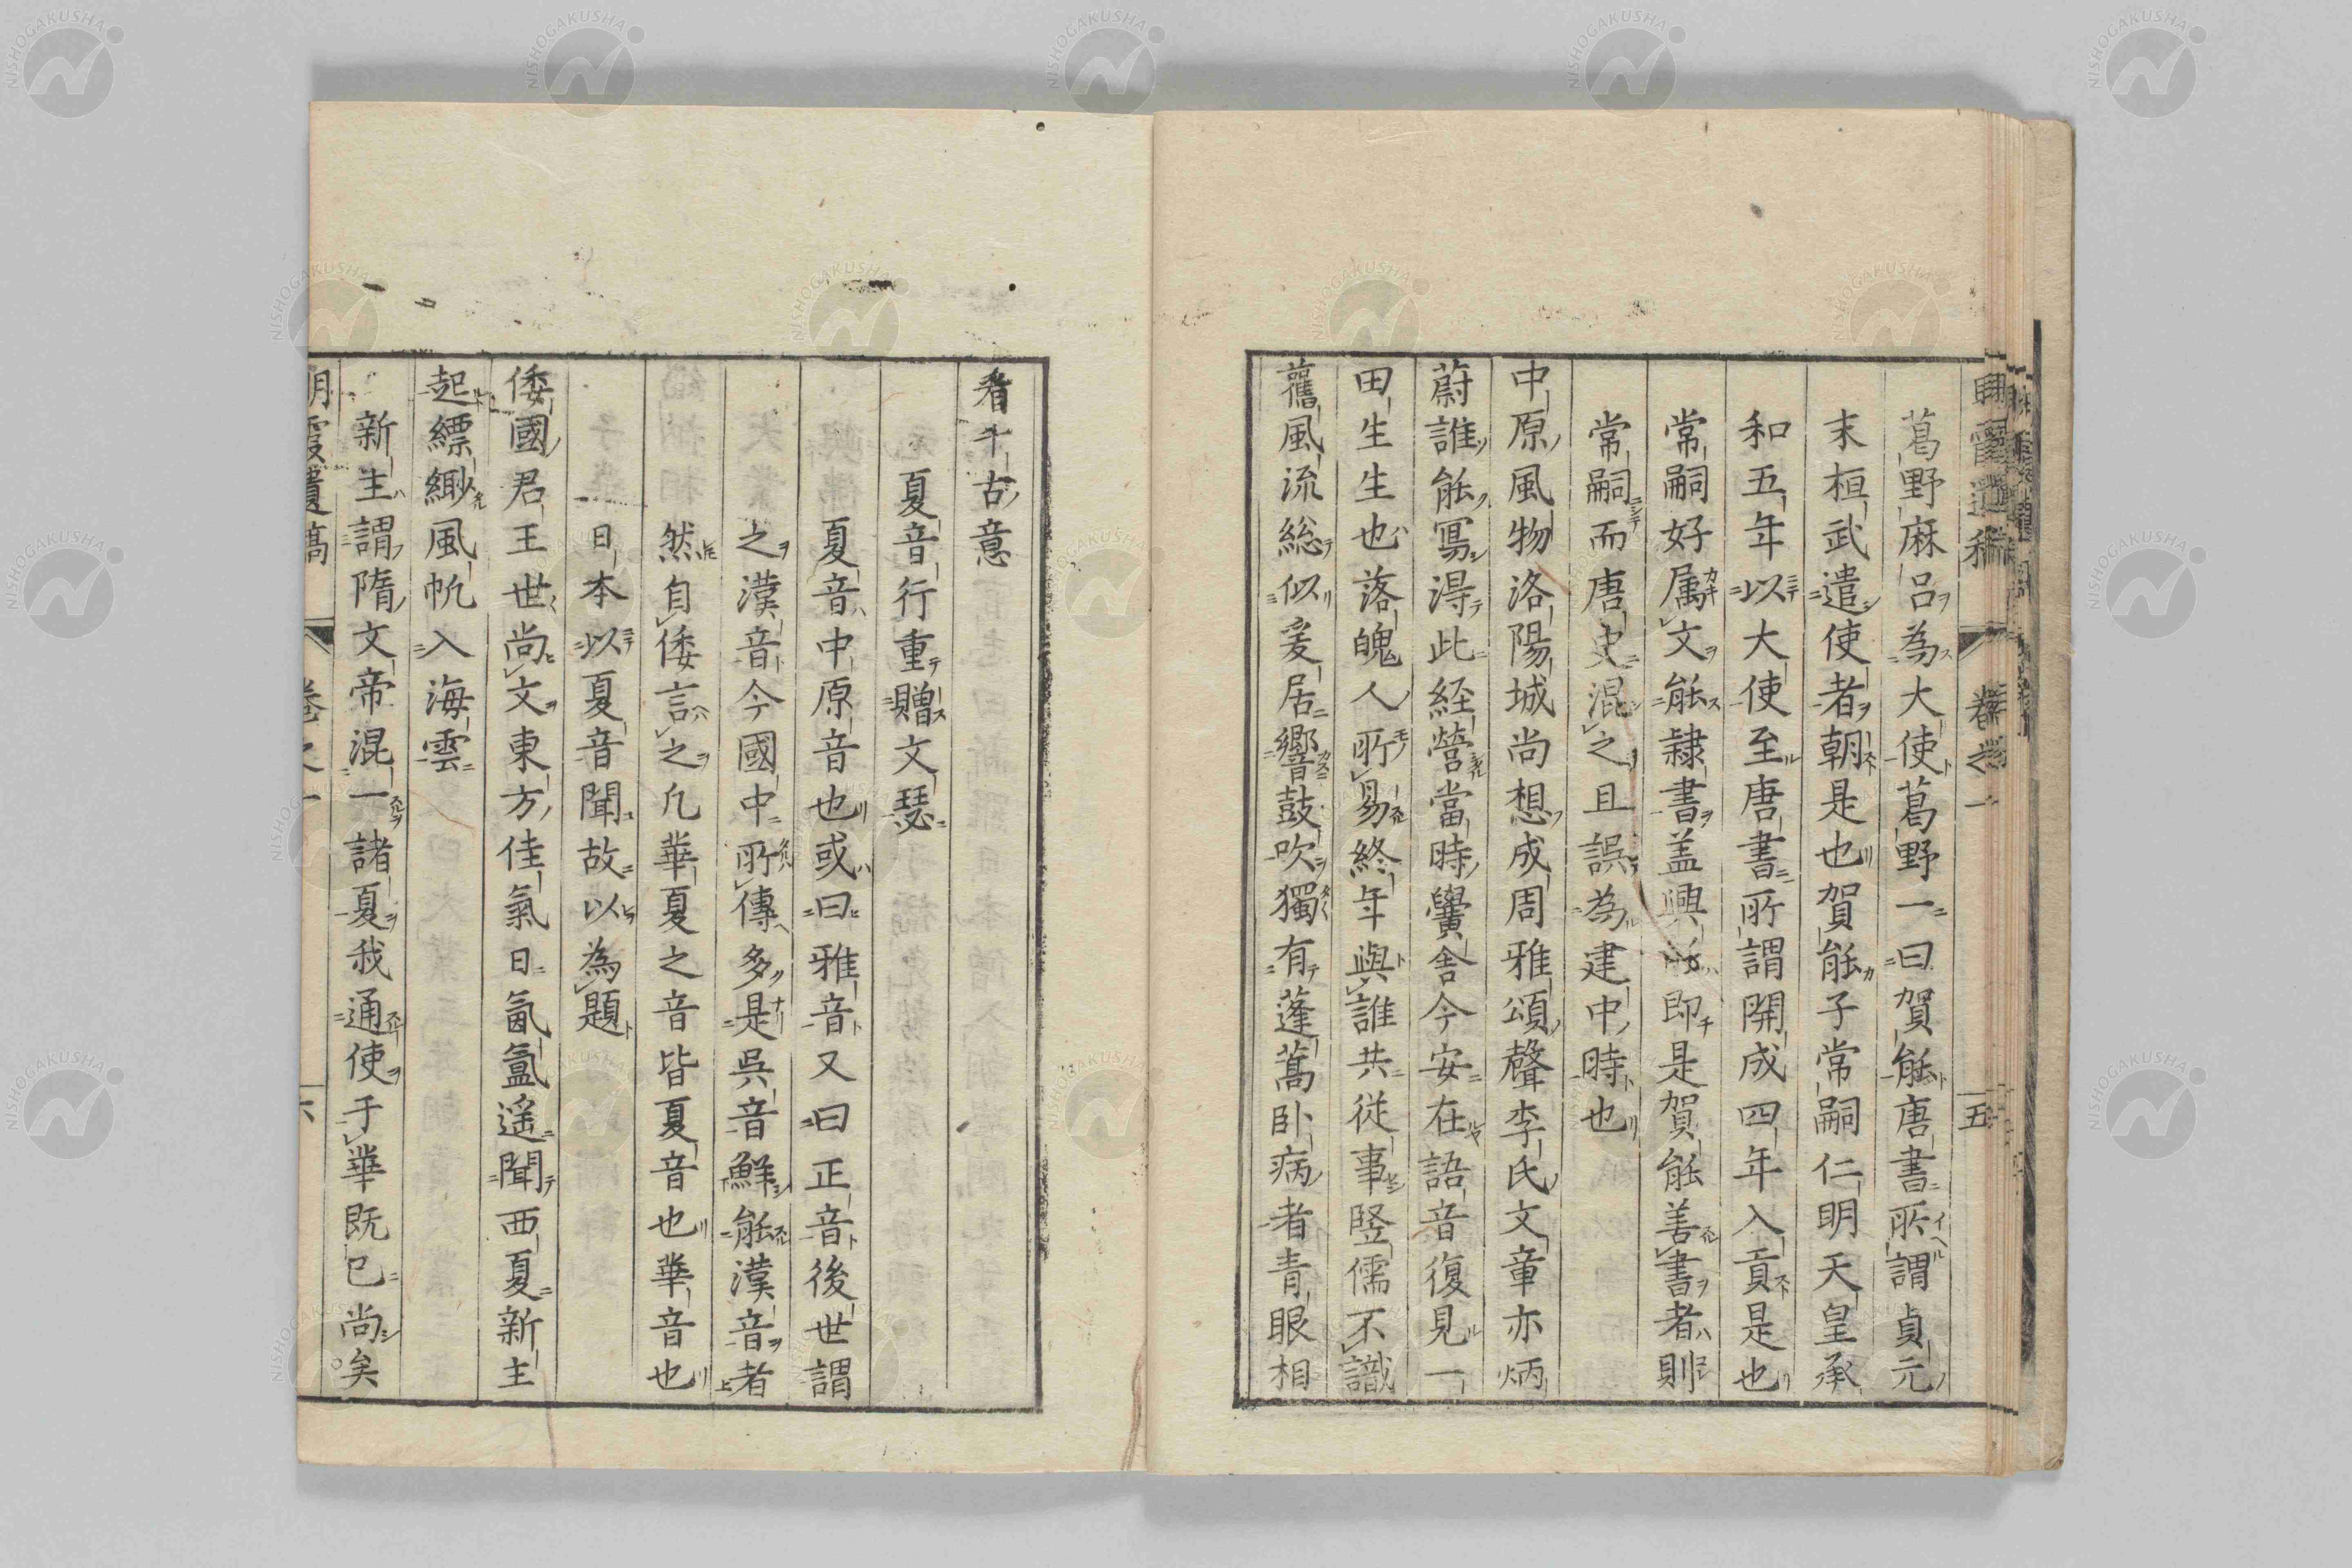 葛野麻呂為大使葛野一曰賀能唐書所謂貞元
末桓武遣使者朝是也賀能子常嗣仁明天皇承
和五年以大使至唐書所謂開成四年入貢是也
常嗣好属文能隷書盖興能即是賀能善書者則
常嗣而唐史混之且誤為建中時也
中原風物洛陽城尚想成周雅頌聲李氏文章亦炳
蔚誰能寫得此経營當時黌舎今安在語音復見一
田生生也落魄人所易終年與誰共従事竪儒不識
舊風流総似爰居響鼓吹獨有蓬蒿卧病者青眼相
看千古意
夏音行重贈文瑟
夏音中原音也或曰雅音又曰正音後世謂
之漢音今國中所傳多是呉音鮮能漢音者
然自倭言之凢華夏之音皆夏音也華音也
日本以夏音聞故以為題
倭國君王世尚文東方佳氣日氤氳遥聞西夏新主
起縹緲風帆入海雲
新主謂隋文帝混一諸夏我通使于華既已尚矣
明霞遺稿 卷之一 六
NISHOGAKUSHA